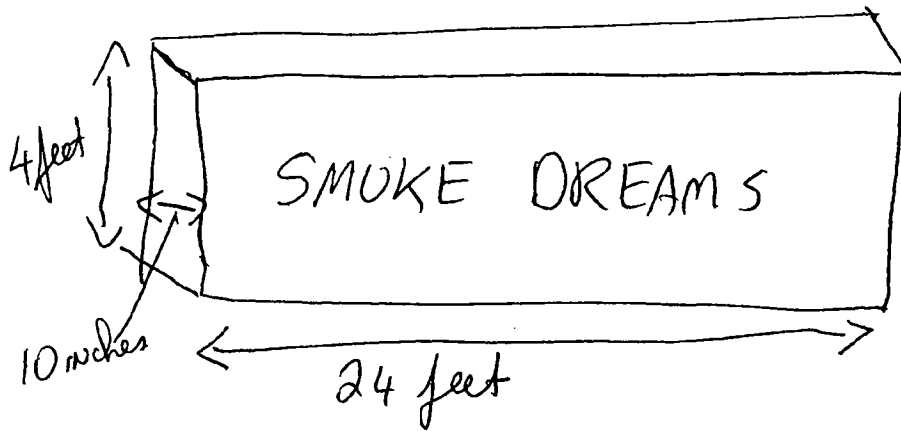 4 feet
SMOKE DREAMS
10 inches
24 feet